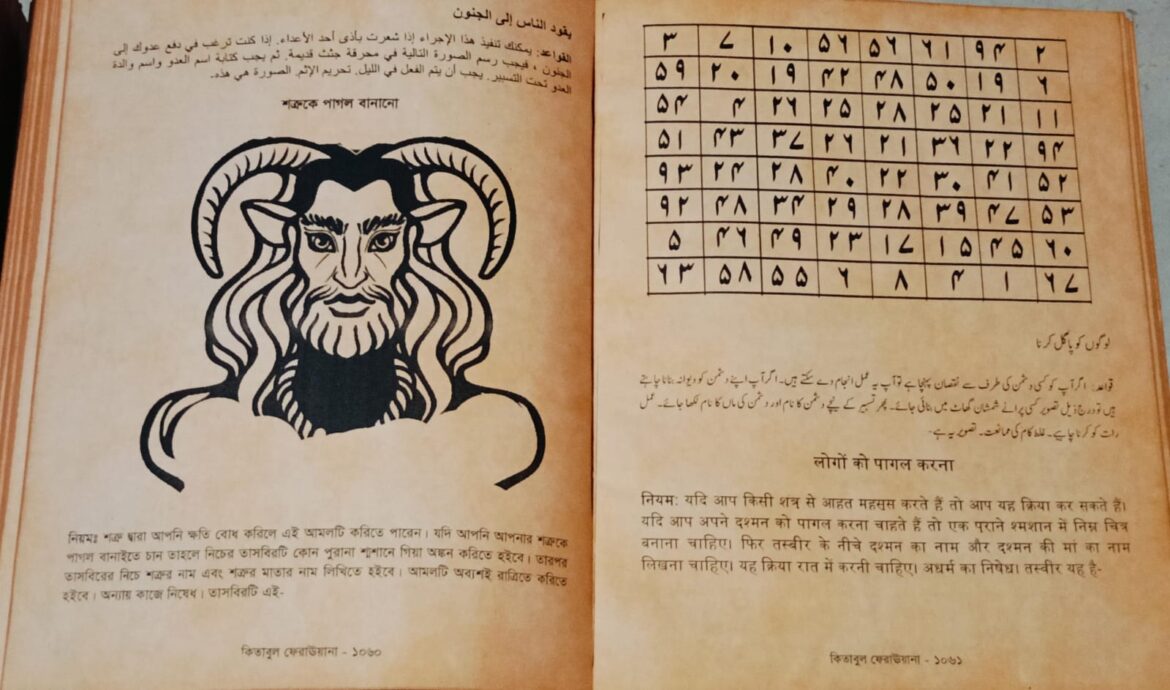 يقود الناس إلى الجنون
القواعد: يمكنك تنفيذ هذا الإجراء إذا شعرت بأذى أحد الأعداء. إذا كنت ترغب في دفع عدوك إلى
الجنون ، فيجب رسم الصورة التالية في محرقة جثث قديمة. ثم يجب كتابة اسم العدو واسم والدة
العدو تحت التسبير. يجب أن يتم الفعل في الليل. تحريم الإثم. الصورة هي هذه.
শত্রুকে পাগল বানানো
নিয়মঃ শত্রু দ্বারা আপনি ক্ষতি বোধ করিলে এই আমলটি করিতে পারেন। যদি আপনি আপনার শত্রুকে
পাগল বানাইতে চান তাহলে নিচের তাসবিরটি কোন পুরানা শ্মশানে গিয়া অঙ্কন করিতে হইবে। তারপর
তাসবিরের নিচে শত্রুর নাম এবং শত্রুর মাতার নাম লিখিতে হইবে। আমলটি অবশ্যই রাত্রিতে করিতে
হইবে। অন্যায় কাজে নিষেধ। তাসবিরটি এই-
কিতাবুল ফেরাউয়ানা - ১০৬০
۳ ۷ ۱۰ ۵۶ ۵۶ ۶۱ ۹۴ ۲
۵۹ ۲۰ ۱۹ ۴۲ ۴۸ ۵۰ ۱۹ ۶
۵۴ ۴ ۲۶ ۲۵ ۲۸ ۲۵ ۲۱ ۱۱
۵۱ ۴۳ ۳۷ ۲۶ ۲۱ ۳۶ ۲۲ ۹۴
۹۳ ۲۴ ۲۸ ۴۰ ۲۲ ۳۰ ۴۱ ۵۲
۹۲ ۴۸ ۳۴ ۲۹ ۲۸ ۳۹ ۴۷ ۵۳
۵ ۴۶ ۴۹ ۲۳ ۱۷ ۱۵ ۴۵ ۶۰
۶۳ ۵۸ ۵۵ ۶ ۸ ۴ ۱ ۶۷
لوگوں کو پاگل کرنا
قواعد: اگر آپ کو کسی دشمن کی طرف سے نقصان پہنچا ہے تو آپ یہ عمل انجام دے سکتے ہیں۔ اگر آپ اپنے دشمن کو دیوانہ بنانا چاہتے
ہیں تو درج ذیل تصویر کسی پرانے شمشان گھاٹ میں بنائی جائے۔ پھر تسبیر کے نیچے دشمن کا نام اور دشمن کی ماں کا نام لکھا جائے۔ عمل
رات کو کرنا چاہیے۔ غلط کام کی ممانعت۔ تصویر یہ ہے-
लोगों को पागल करना
नियम: यदि आप किसी शत्रु से आहत महसूस करते हैं तो आप यह क्रिया कर सकते हैं।
यदि आप अपने दुश्मन को पागल करना चाहते हैं तो एक पुराने श्मशान में निम्न चित्र
बनाना चाहिए। फिर तस्वीर के नीचे दुश्मन का नाम और दुश्मन की मां का नाम
लिखना चाहिए। यह क्रिया रात में करनी चाहिए। अधर्म का निषेध। तस्वीर यह है-
কিতাবুল ফেরাউয়ানা - ১০৬১